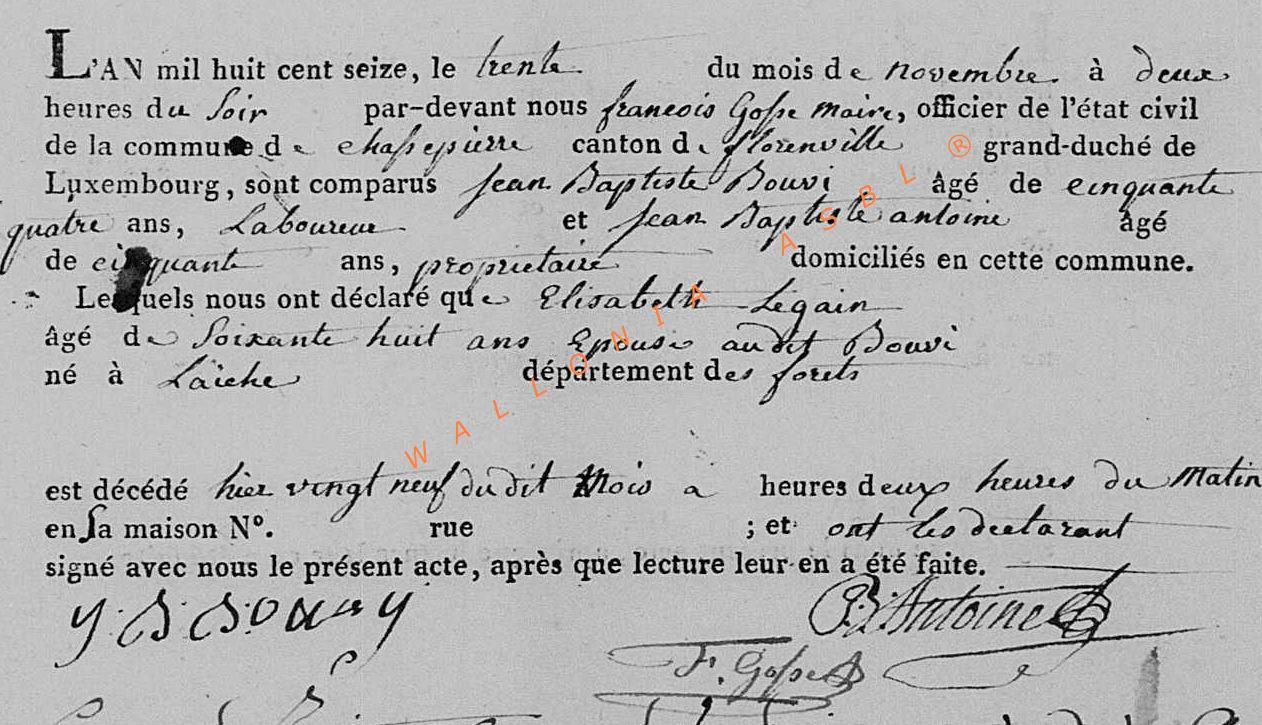 L'AN mil huit cent seize, le trente du mois de novembre à deux
heures du Soir par-devant nous francois Gosse maire, officier de l'état civil
de la commune de chassepierre canton de florenville ® grand-duché de
Luxembourg, sont comparus Jean Baptiste Bouvi âgé de cinquante
quatre ans, Laboureur et Jean Baptiste antoine âgé
de cinquante ans, proprietaire domiciliés en cette commune.
Lesquels nous ont déclaré que Elisabeth Legain
âgé de Soixante huit ans Epouse audit Bouvi
né à Laiche département des forets
WALLONIA ASBL
est décédé hier vingt neuf dudit Mois a heures deux heures du Matin
en sa maison N°. rue ; et ont les declarant
signé avec nous le présent acte, après que lecture leur en a été faite.
Antoine
F. Gosse